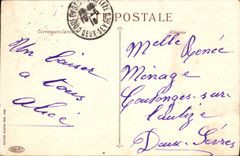 POSTALE
Correspondance
DEUX-SEVRES
Un baiser
à tous
Alice
Melle Renée
Ménage
Coulonges-sur-
l'autize
Deux-Sèvres